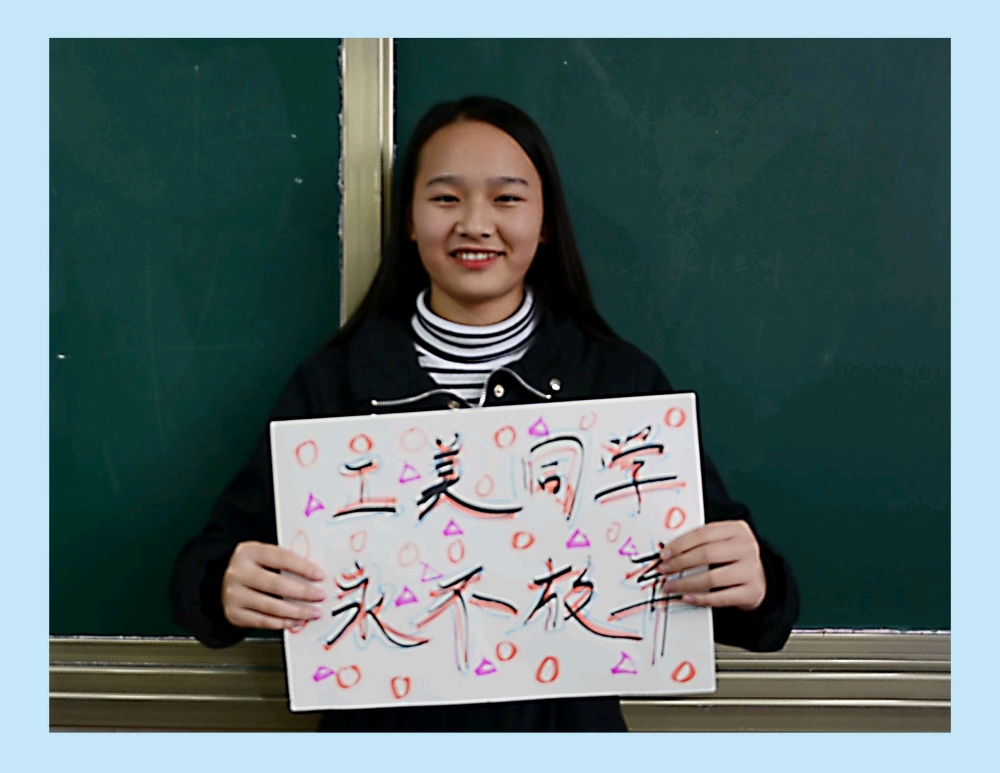 工美同学
永不放弃